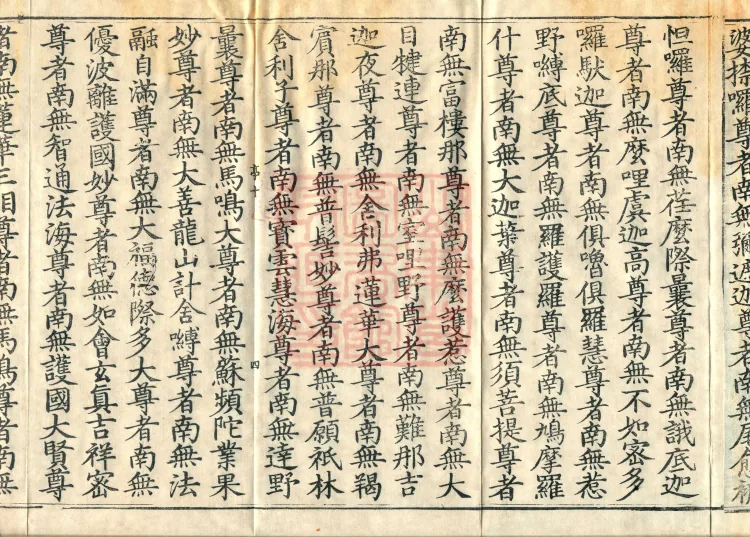 婆拶囉尊者南無彌遮迦尊者南無
怛囉尊者南無荏麼際曩尊者南無誐底迦
尊者南無麼哩虞迦高尊者南無不如密多
羅馱迦尊者南無俱嚕俱羅慧尊者南無惹
野縛底尊者南無羅護羅尊者南無鳩摩羅
什尊者南無大迦葉尊者南無須菩提尊者
南無富樓那尊者南無麼護惹尊者南無大
目犍連尊者南無室哩野尊者南無難那吉
迦夜尊者南無舍利弗蓮華大尊者南無羯
賓那尊者南無普髻妙尊者南無普願祇林
舍利子尊者南無寶雲慧海尊者南無達野
亭十 四
曩尊者南無馬鳴大尊者南無蘇頻陀業果
妙尊者南無大善龍山計舍嚩尊者南無法
融自滿尊者南無大福德際多大尊者南無
優波離護國妙尊者南無如會玄真吉祥密
尊者南無智通法海尊者南無護國大賢尊
者南無蓮華三相尊者南無馬鳴尊者南無